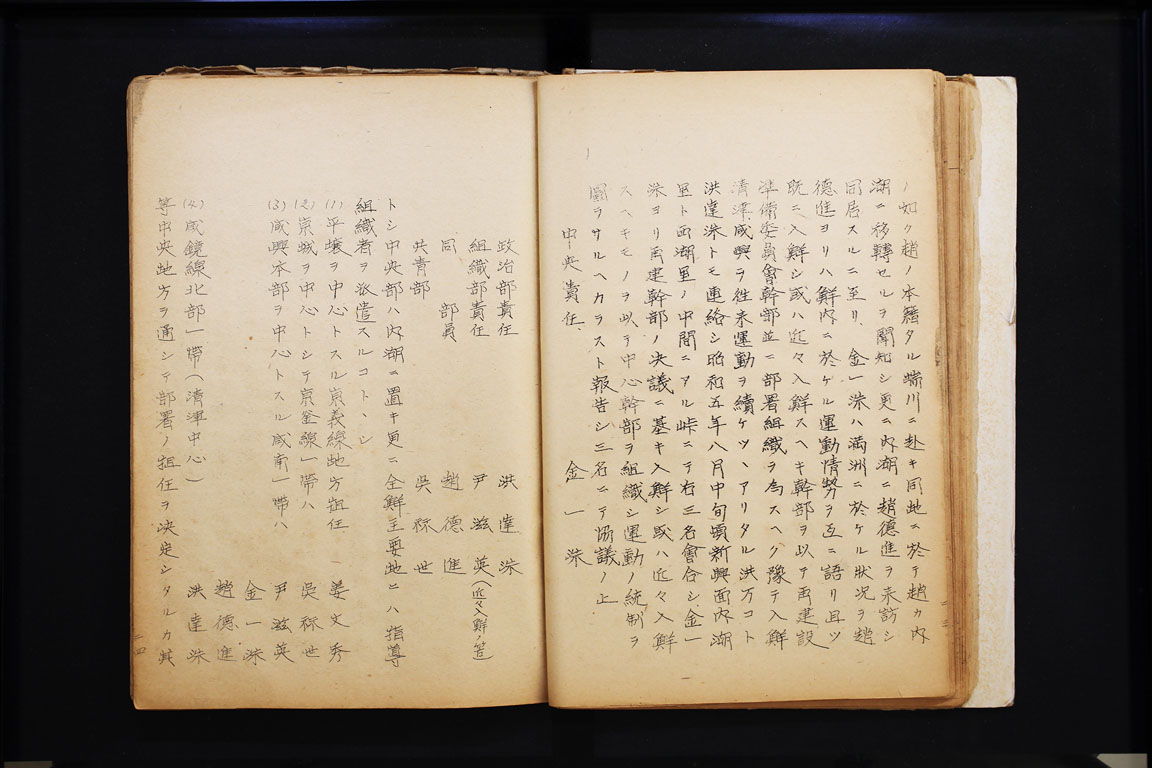 ノ知ク趙ノ本籍タル端川ニ赴キ同地ニ於テ趙カ内
湖ニ移轉セルヲ聞知シ更ニ内湖ニ趙德進ヲ来訪シ
同居スルニ至リ、金一洙ハ満洲ニ於ケル狀況ヲ趙
德進ヨリハ鮮内ニ於ケル運動情勢ヲ互ニ語リ且ツ
既ニ入鮮シ或ハ近々入鮮スヘキ幹部ヲ以テ再建設
準備委員會幹部並ニ部署組織ヲ為スヘク豫テ入鮮
清津咸興ヲ往来運動ヲ續ケツヽアリタル洪万コト
洪達洙トモ連絡シ昭和五年八月中旬頃新興面内湖
里ト西湖里ノ中間ニアル峠ニテ右三名會合シ金一
洙ヨリ再建幹部ノ決議ニ基キ入鮮シ或ハ近々入鮮
スヘキモノヲ以テ中心幹部ヲ組織シ運動ノ統制ヲ
圖ラサルヘカラスト報告シ三名ニテ協議ノ上
中央責任 金一洙
二三
政治部責任 洪達洙
組織部責任 尹滋英(近々入鮮ノ筈)
同 部員 趙德進
共青部 吳祘世
トシ中央部ハ内湖ニ置キ更ニ全鮮主要地ニハ指導
組織者ヲ派遣スルコトヽシ
(1)平壤ヲ中心トスル京義線地方担任 姜文秀
(2)京城ヲ中心トシテ京釜線一帶ハ 吳祘世
(3)咸興本部ヲ中心トスル咸南一帶ハ 尹滋英
金一洙
趙德進
(4)咸鏡線北部一帶(清津中心) 洪達洙
等中央地方ヲ通シテ部署ノ担任ヲ決定シタルカ其
二四